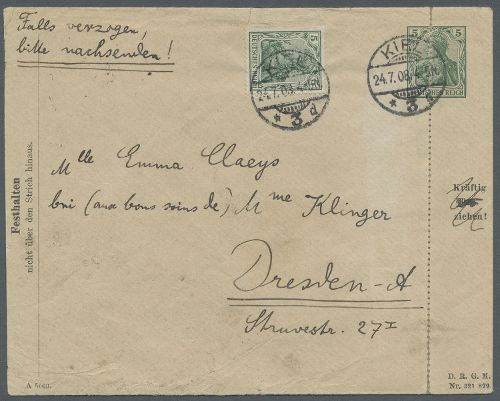 Falls verzogen,
bitte nachsenden!
5
DEUTSCHES REICH
KIEL
24.7.08. 4-5N.
* 3 d
5 5
DEUTSCHES REICH
KIEL
24.7.08. 4-5N.
* 3 d
Festhalten
nicht über den Strich hinaus.
Mlle Emma Claeys
bei (aux bons soins de) Mme Klinger
Dresden-A
Struvestr. 27 I
Kräftig
ziehen!
A
D. R. G. M.
Nr. 321 879